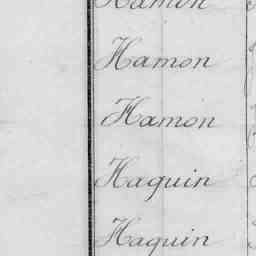 Hamon
Hamon
Hamon
Haquin
Haquin